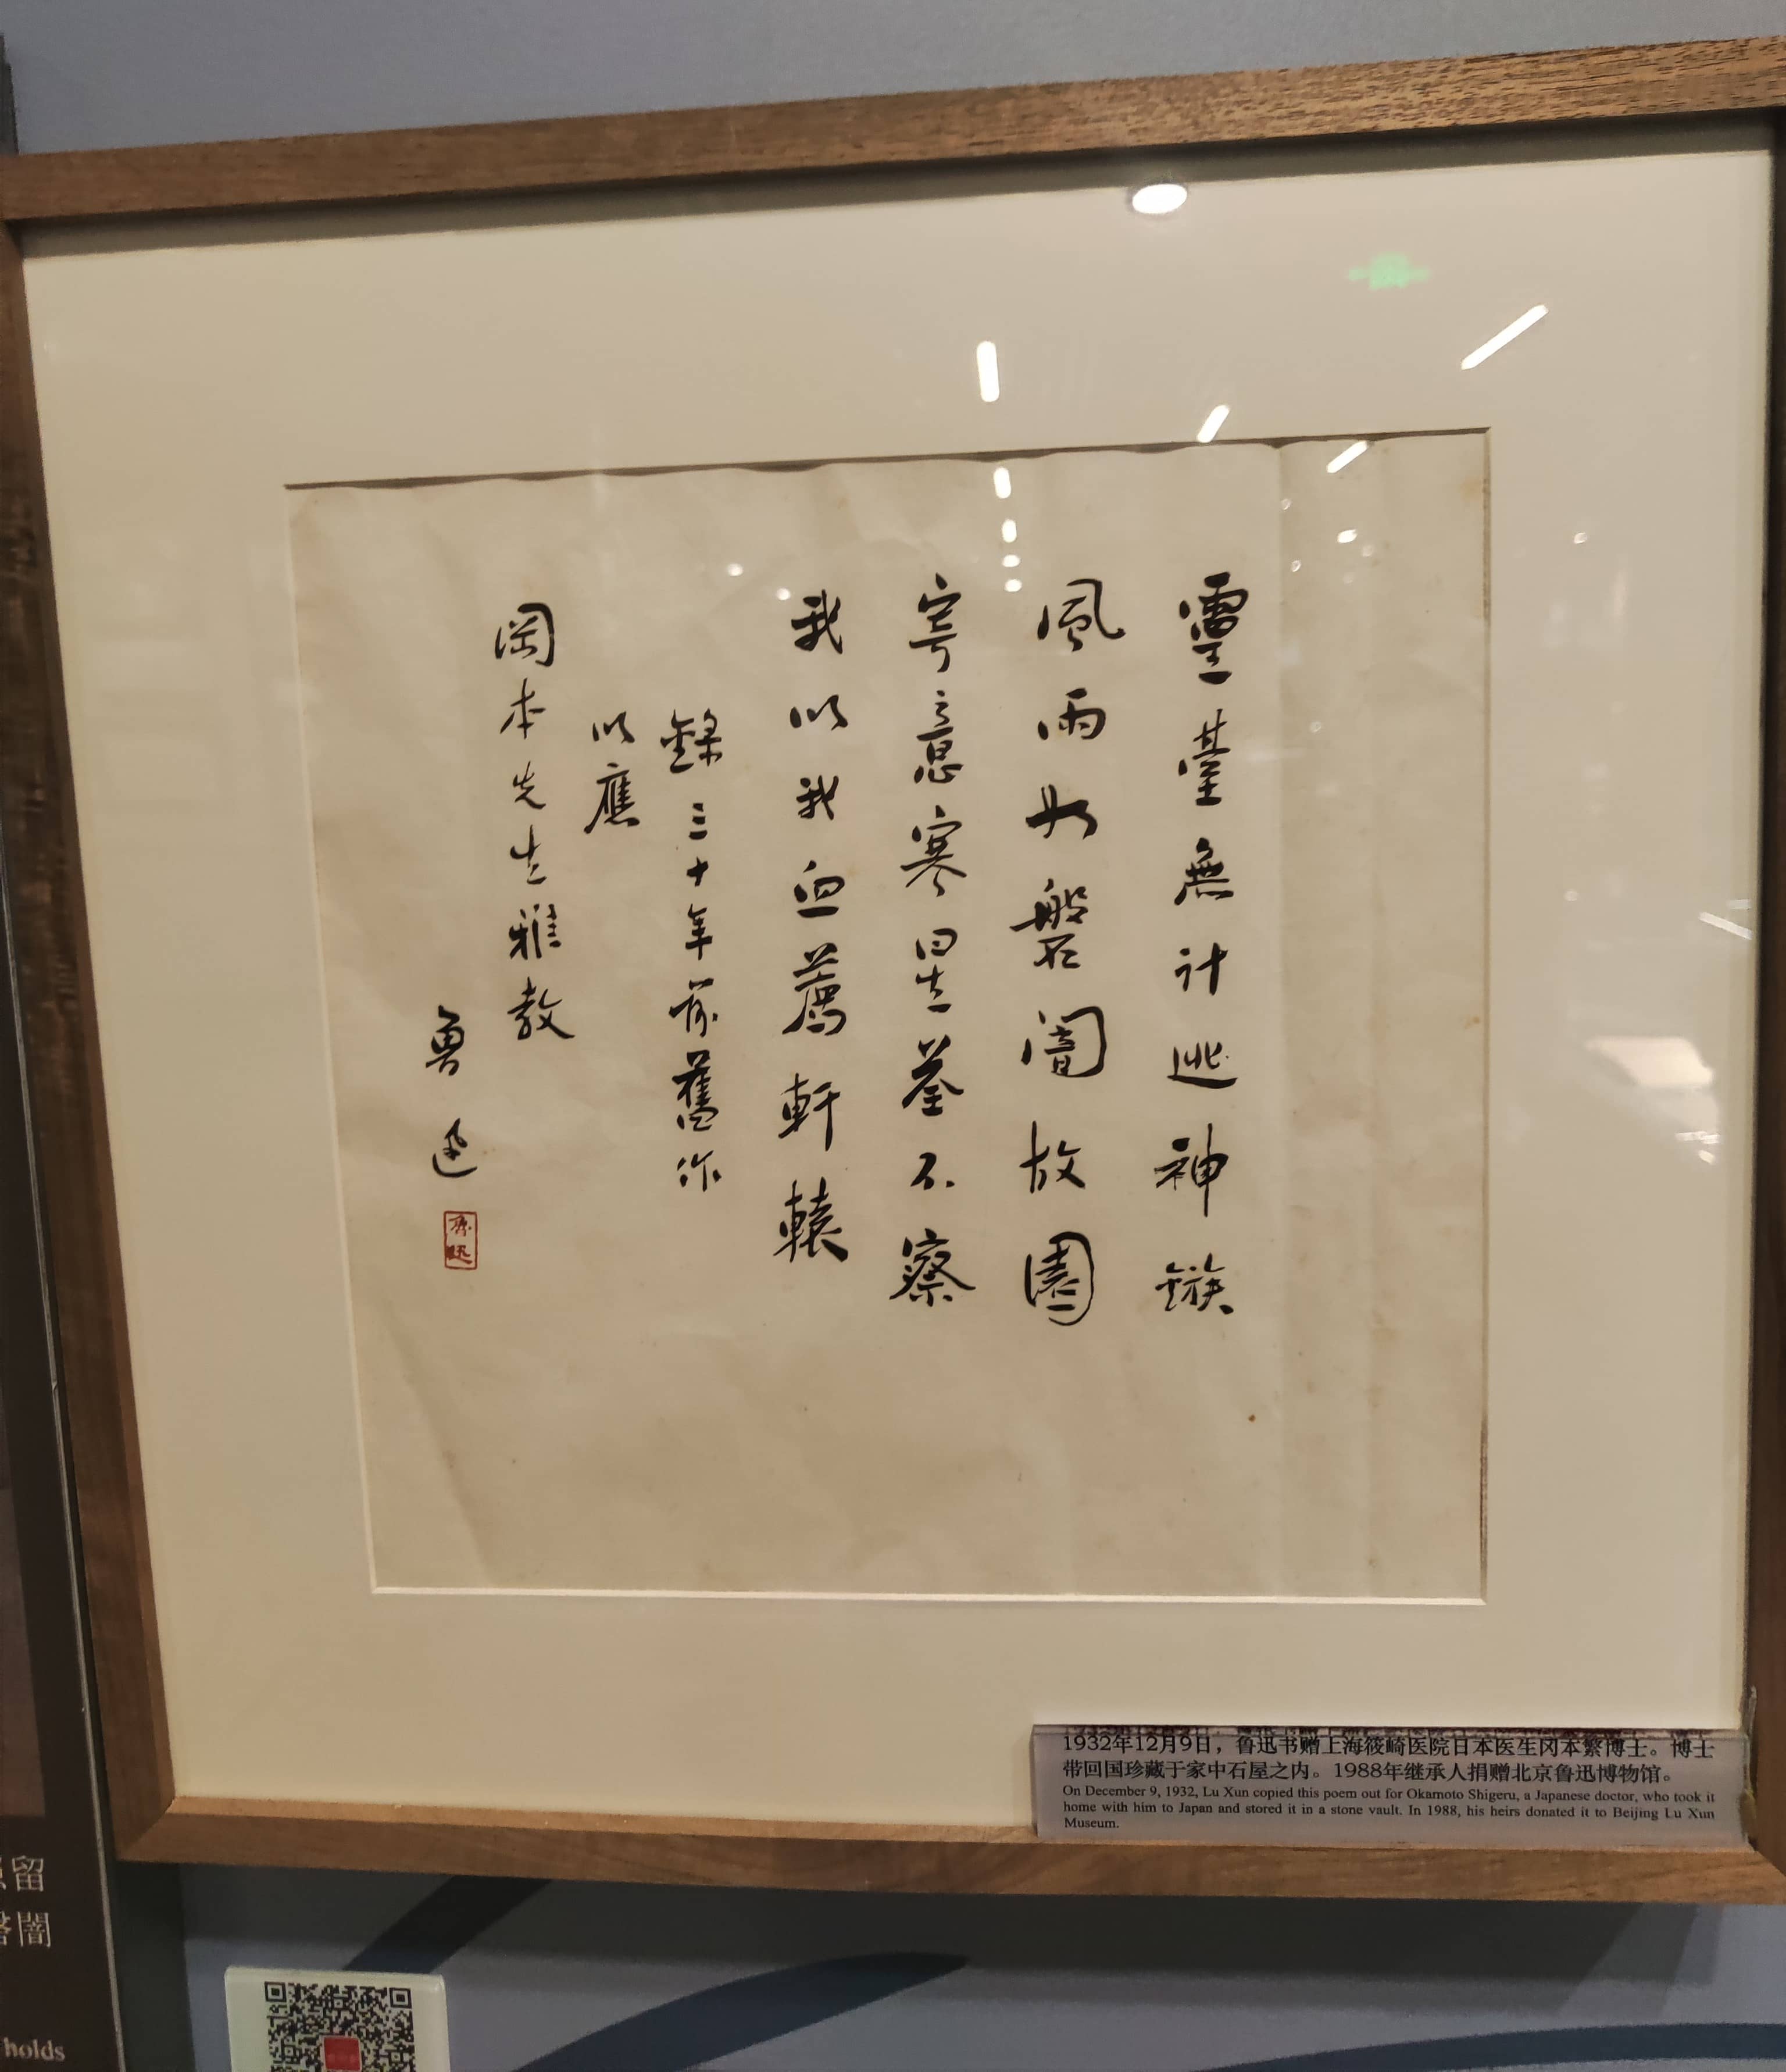 靈臺無計逃神鏃
風雨如磐闇故園
寄意寒星荃不察
我以我血薦軒轅
錄三十年前舊作
以應
岡本先生雅教
魯迅
魯迅
1932年12月9日，鲁迅书赠上海筱崎医院日本医生冈本繁博士。博士
带回国珍藏于家中石屋之内。1988年继承人捐赠北京鲁迅博物馆。
On December 9, 1932, Lu Xun copied this poem out for Okamoto Shigeru, a Japanese doctor, who took it
home with him to Japan and stored it in a stone vault. In 1988, his heirs donated it to Beijing Lu Xun
Museum.
留
闇
holds